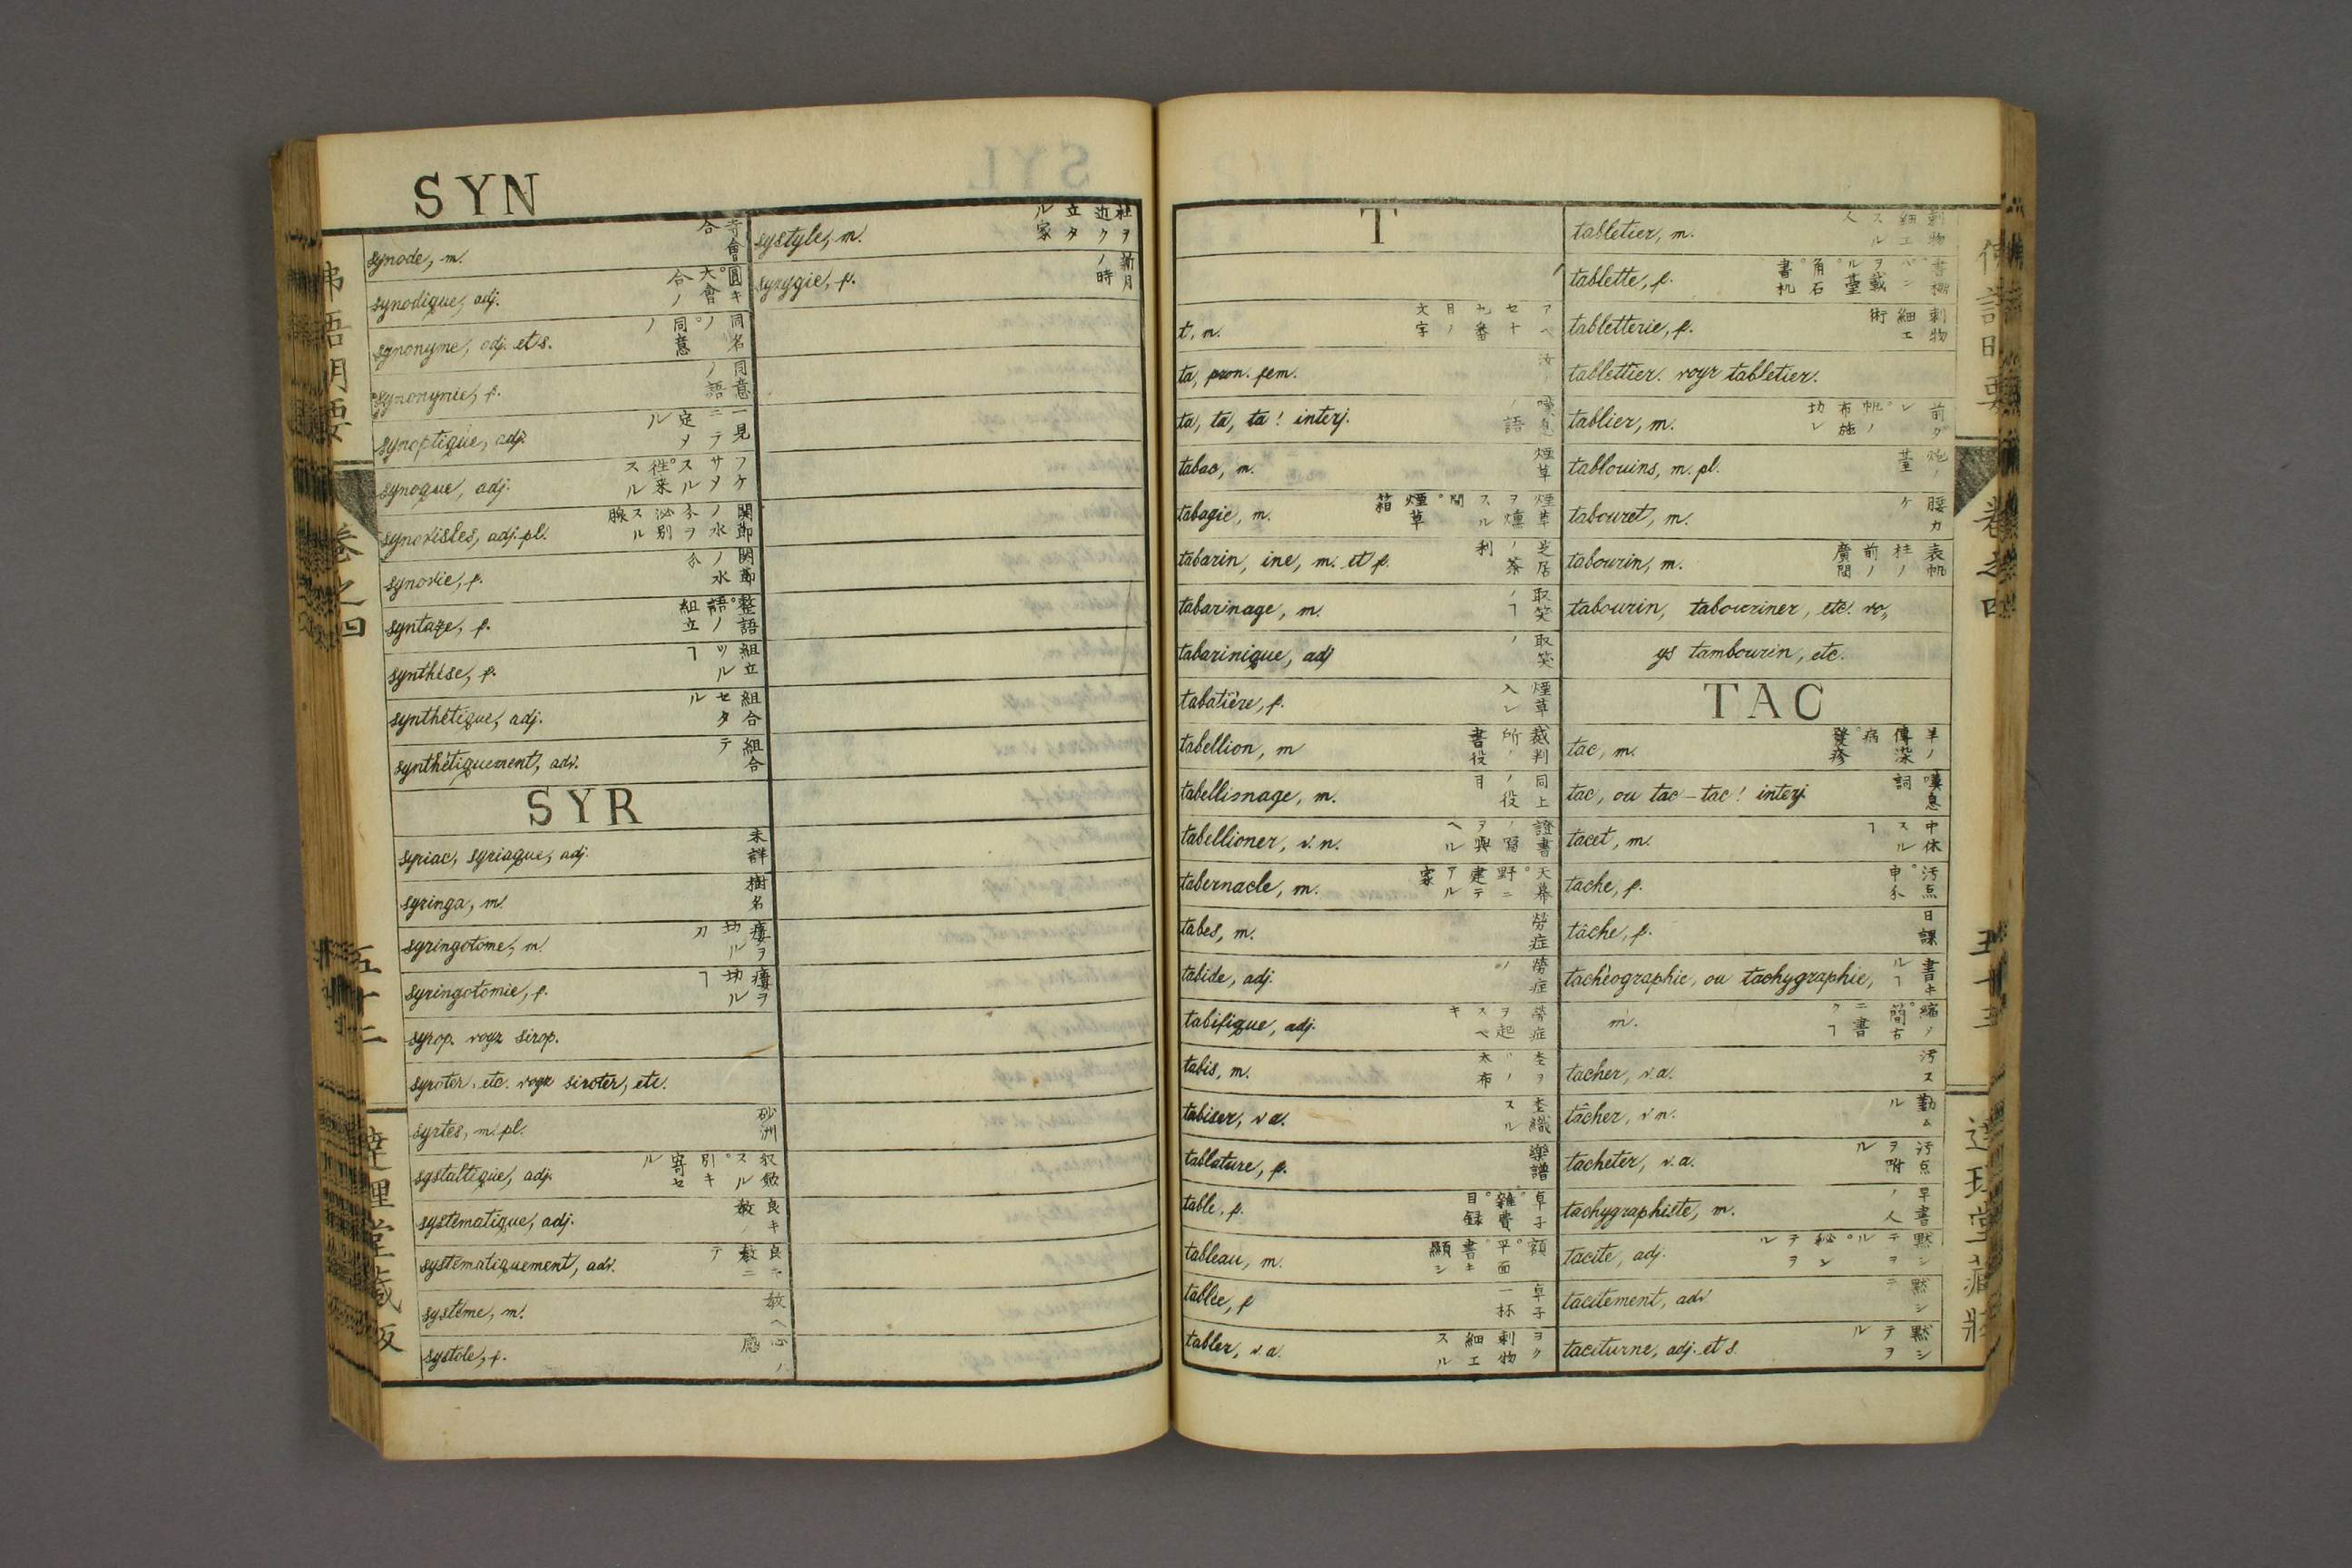 SYN
synode, m. 寺會合
synodique, adj. 圓キ大會合ノ
synonyme, adj. et s. 同名ノ。同意ノ
synonymie, f. 同意ノ語
synoptique, adj. 一見ニテ定メル
synoque, adj.
synoviales, adj. pl. 関節ノ水ヲ泌別スル腺
synovie, f. 関節ノ水
syntaxe, f. 整語。語ノ組立
synthèse, f. 組立ツルヿ
synthétique, adj. 組合セタル
synthétiquement, adv. 組合テ
SYR
syriac, syriaque, adj. 未詳
syringa, m. 樹名
syringotome, m. 瘻ヲ切ル刀
syringotomie, f. 瘻ヲ切ルヿ
syrop. voyz sirop.
syroter, etc. voyz siroter, etc.
syrtes, m. pl. 砂洲
systaltique, adj.
systématique, adj. 良キ教ノ
systématiquement, adv. 良キ教ニテ
système, m. 教ヘ
systole, f.
systyle, m. 柱ヲ近ク立タル家
syzygie, f. 新月ノ時
T
t, m.
ta, pron. fem. 汝ノ
ta, ta, ta! interj. 嘆息ノ語
tabac, m. 煙草
tabagie, m. 煙草ヲ燻スル間。煙草箱
tabarin, ine, m. et f. 芝居ノ茶利
tabarinage, m. 取笑ノヿ
tabarinique, adj 取笑ノ
tabatière, f. 煙草入レ
tabellion, m 裁判所ノ書役
tabellionage, m. 同上ノ役目
tabellioner, v. n. 證書ノ寫ヲ與ヘル
tabernacle, m. 天幕。野ニ建テアル家
tabes, m. 勞症
tabide, adj. 勞症ノ
tabifique, adj. 勞症ヲ起スベキ
tabis, m.
tabiser, v a.
tablature, f. 樂譜
table, f. 卓子。雜費。目録
tableau, m. 額。平面。書キ顯シ
tablée, f 卓子一杯
tabler, v. a.
tabletier, m. 刺物細工スル人
tablette, f.
tabletterie, f. 刺物細工術
tablettier. voyz tabletier.
tablier, m.
tablouins, m. pl. 炮ノ臺
tabouret, m. 腰カケ
tabourin, m.
tabourin, tabouriner, etc. vo„
yz tambourin, etc.
TAC
tac, m. 羊ノ傳染病。發疹
tac, ou tac-tac! interj. 嘆息詞
tacet, m. 中休スルヿ
tache, f. 汚点。
tâche, f. 日課
tachéographie, ou tachygraphie,
m.
tacher, v. a. 汚ス
tâcher, v n. 勤ムル
tacheter, v. a. 汚点ヲ附ル
tachygraphiste, m. 早書ノ人
tacite, adj.
tacitement, adv 黙シニ
taciturne, adj. et s. 黙シテヲル
巻之四
五十二
巻之四
五十三